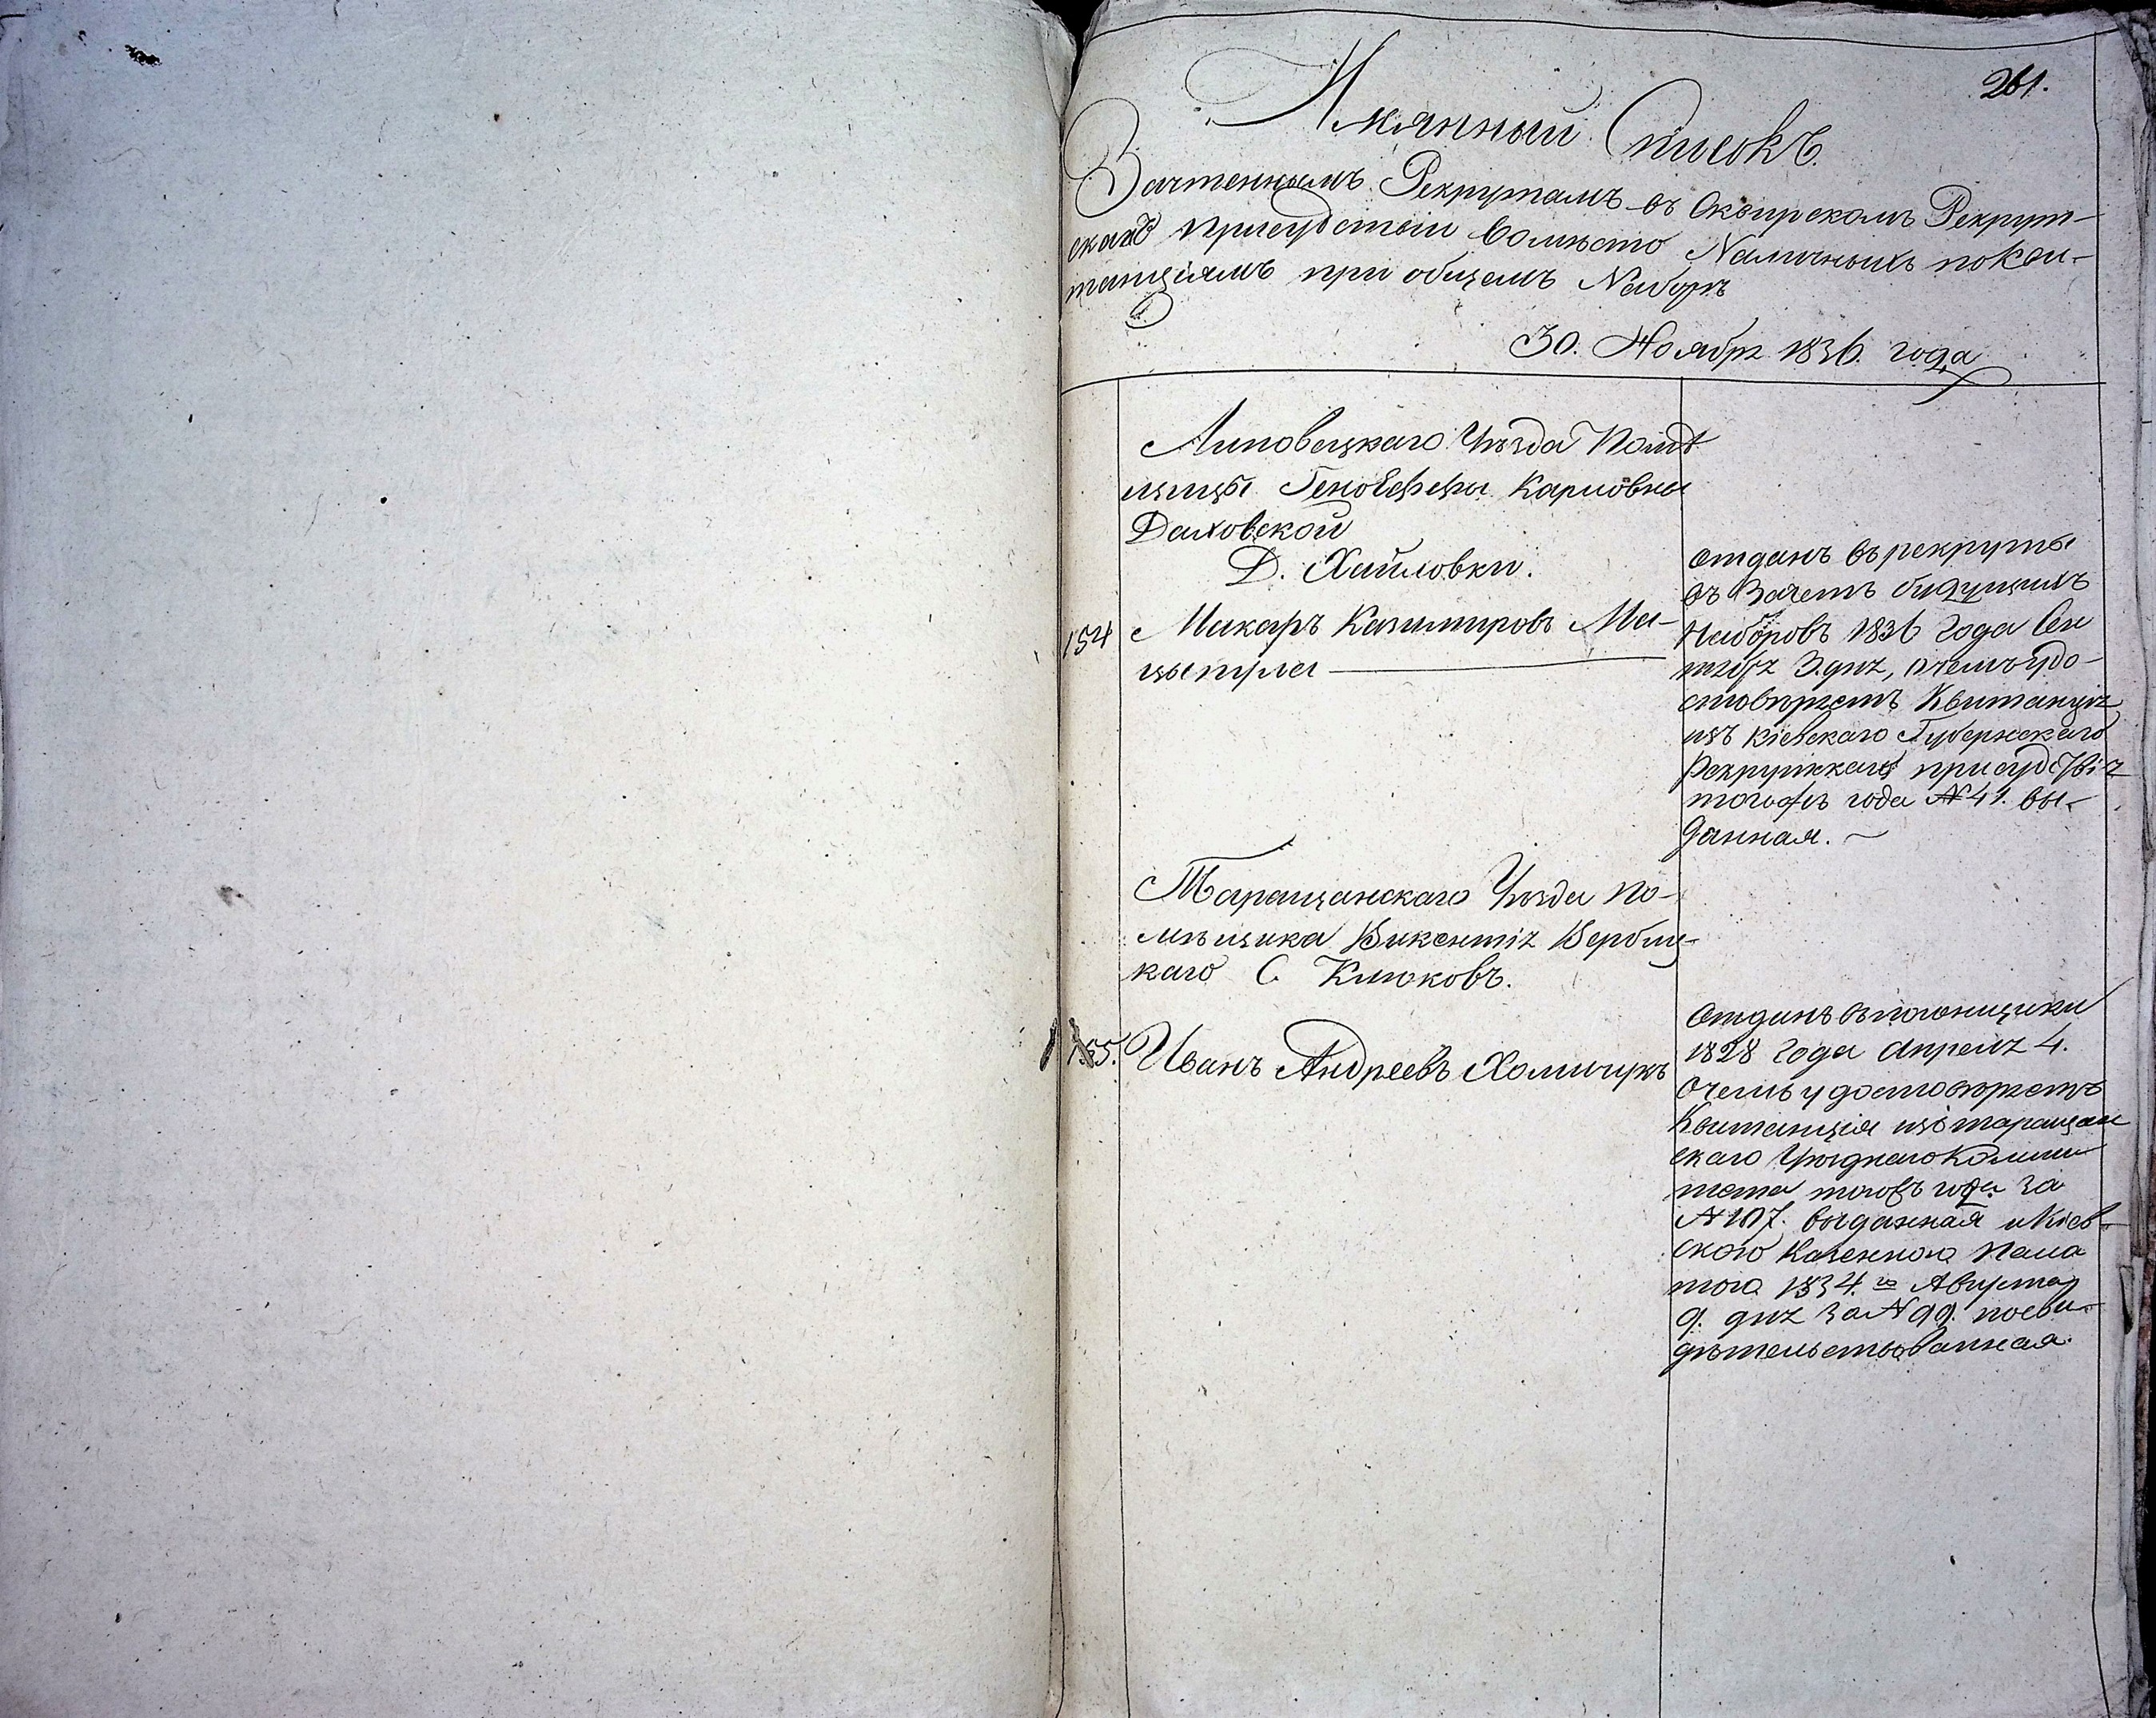 261.
Имянный Списокъ
Зачтеннымъ Рекрутамъ въ Сквирскомъ Рекрут-
скомъ присудствіи вомѣсто Наличныхъ по Кви-
танціямъ при общемъ Наборѣ
30. Ноября 1836. года
Липовецкаго Уѣзда Помѣ
щицы Геновефы Карловны
Далховской
Д. Хайловки.
154 Макаръ Казимировъ Ма-
цытра
отданъ въ рекруты
въ Зачетъ будущихъ
Наборовъ 1836 года Сен
тября 3. дня, о чемъ удо-
стовѣряетъ Квитанція
изъ Кіевскаго Губернскаго
Рекрутскаго присудствія
того жъ года № 41. вы-
данная.
Таращанскаго Уѣзда По-
мѣщика Викентія Вербиц-
каго С Клюковъ.
155. Иванъ Андреевъ Хомичукъ
Отданъ въ погонщики
1828 года Апреля 4.
О чемъ удостовѣряетъ
Квитанція изъ таращан
скаго Уѣзднаго Комми
тета того жъ года за
№ 107. выданная и Кіев-
скою Казенною Пала
тою 1834. го Августа
9. дня за № 99. посви-
дѣтельствованная.